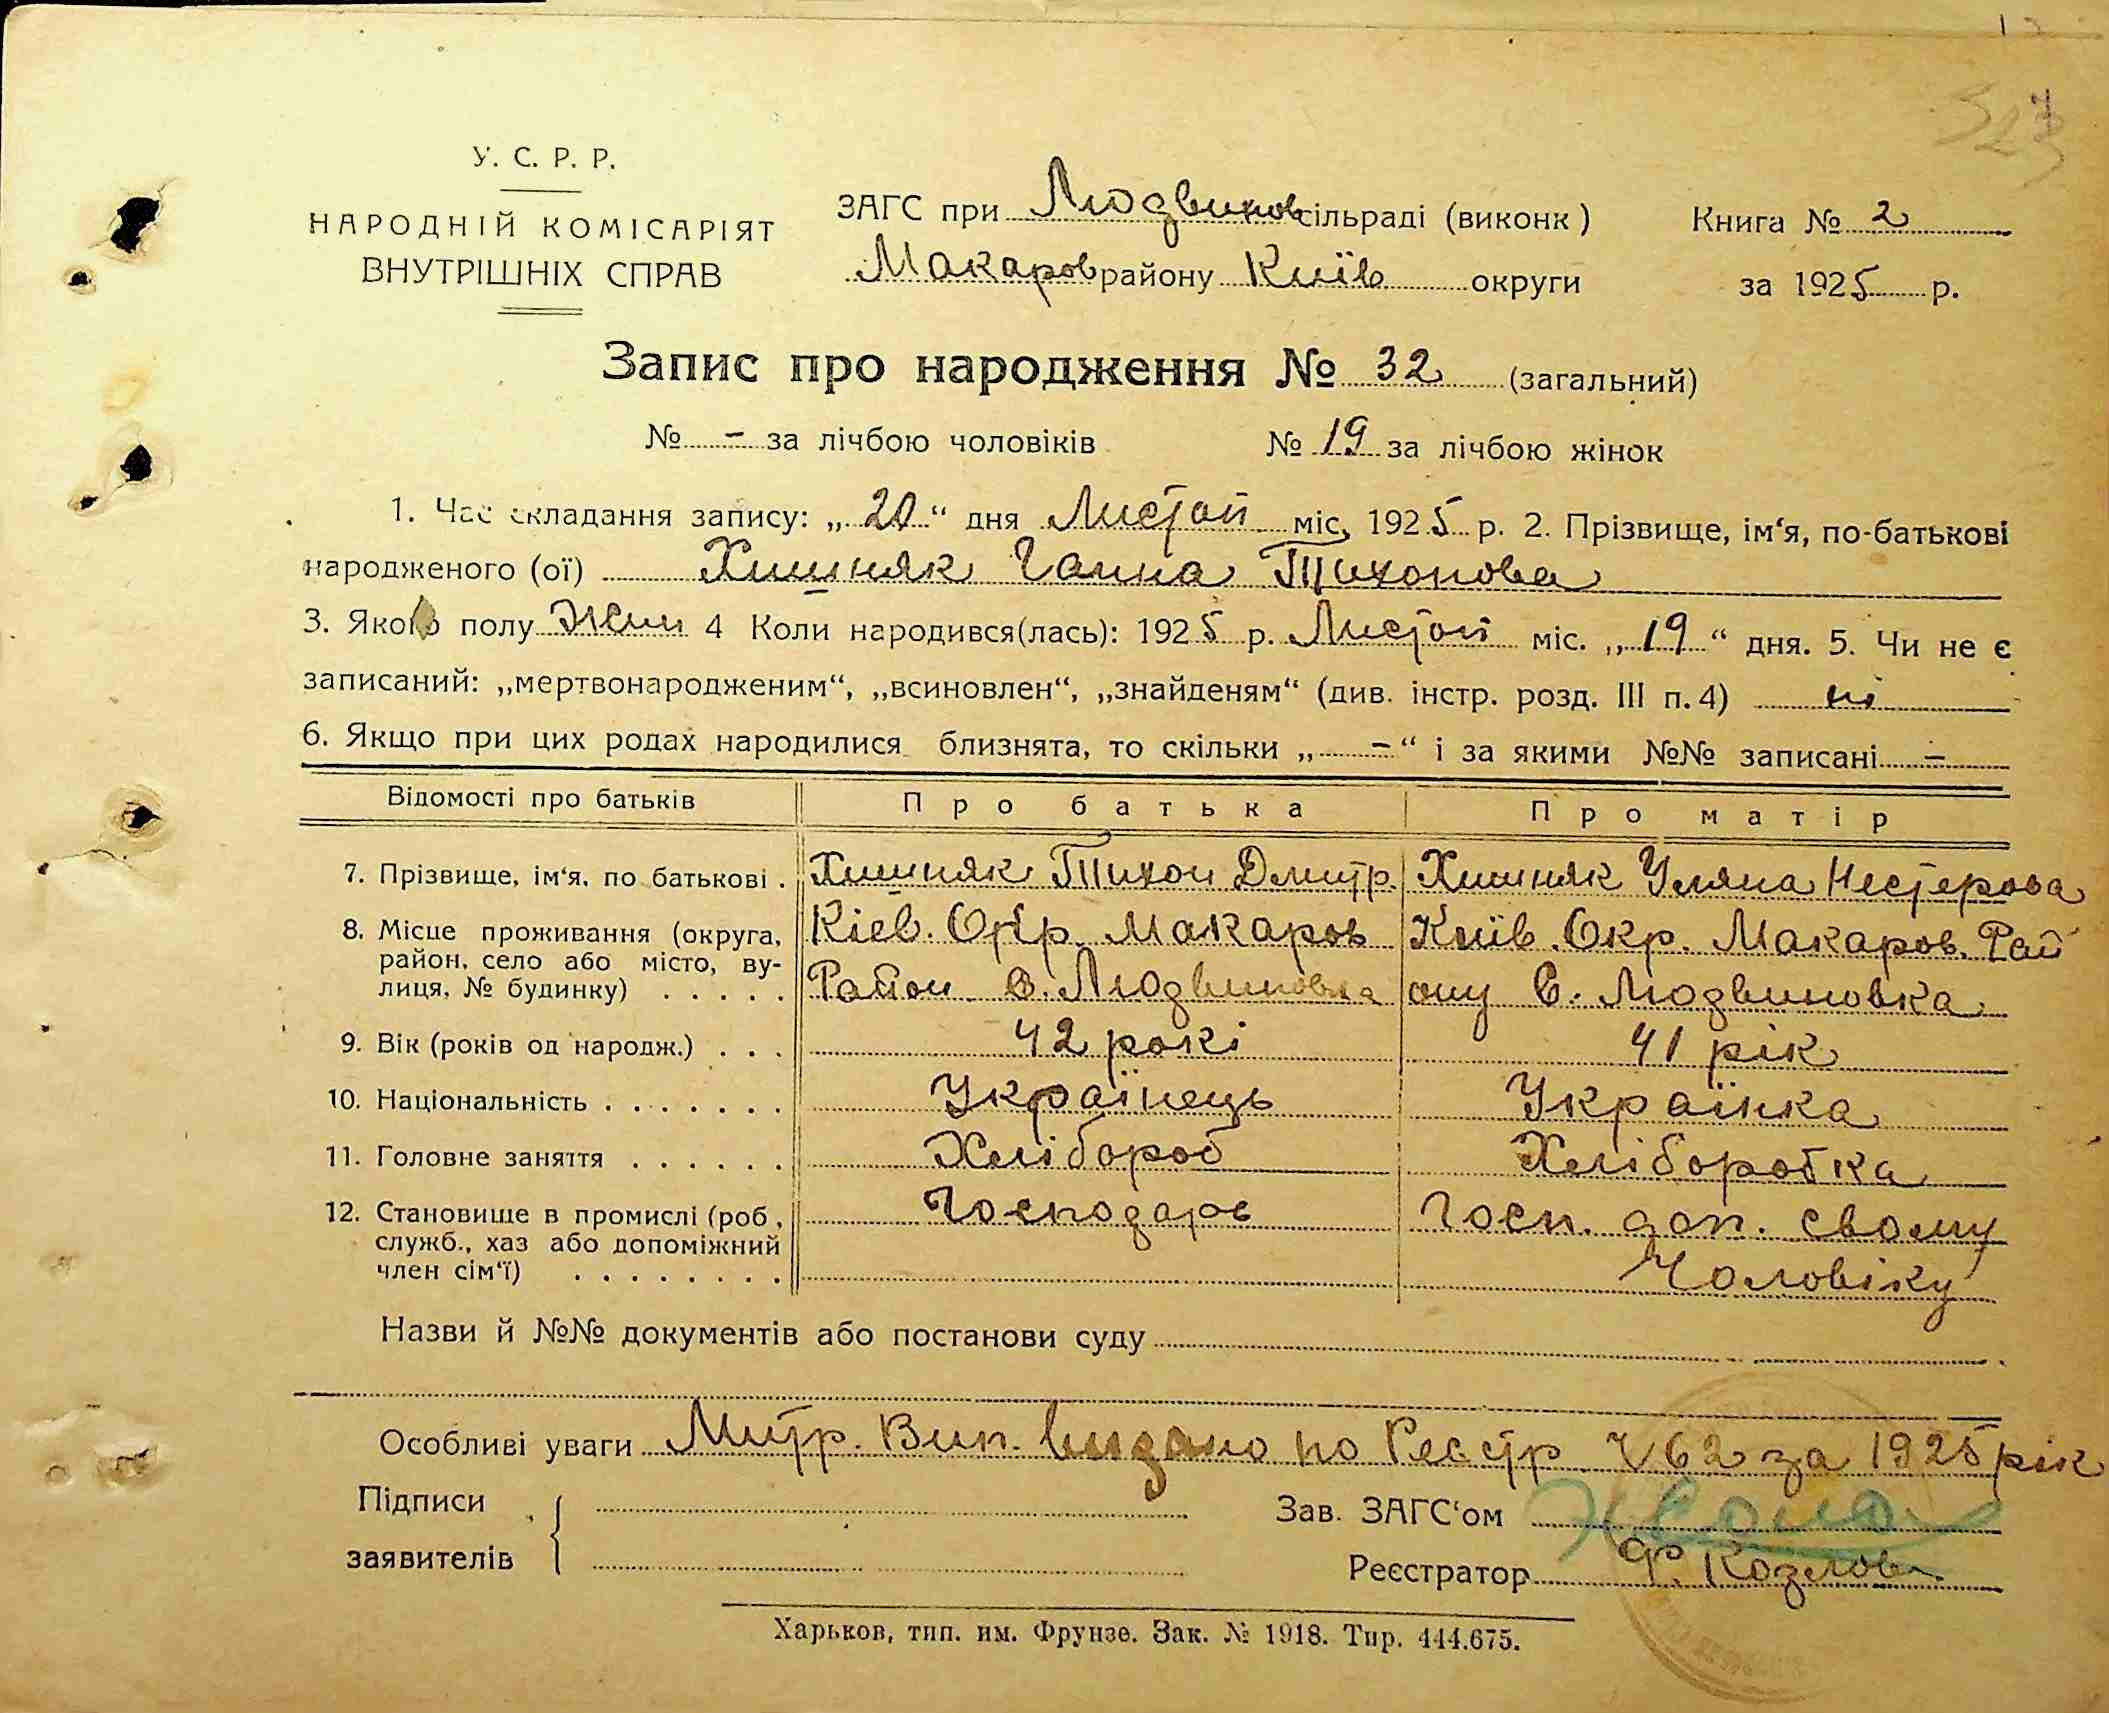 У. С. Р. Р.
НАРОДНІЙ КОМІСАРІЯТ
ВНУТРІШНІХ СПРАВ
ЗАГС при Людвинов сільраді (виконк)
Макаров району Київ округи
Книга № 2
за 1925 р.
Запис про народження № 32 (загальний)
№ - за лічбою чоловіків № 19 за лічбою жінок
1. Час складання запису: „20“ дня Листоп міс, 1925 р. 2. Прізвище, ім‘я, по-батькові
народженого (ої) Хишняк Ганна Тихонова
3. Якого полу Жин 4 Коли народився(лась): 1925 р. Листоп міс. „19“ дня. 5. Чи не є
записаний: „мертвонародженим“, „всиновлен“, „знайденям“ (див. інстр. розд. III п. 4) ні
6. Якщо при цих родах народилися близнята, то скільки „-“ і за якими №№ записані -
Відомості про батьків Про батька Про матір
7. Прізвище, ім‘я, по батькові . Хишняк Тихон Дмитр. Хишняк Уляна Нестерова
8. Місце проживання (округа, район, село або місто, вулиця, № будинку) . . . . .
Кіев. Окр. Макаров
Район с. Людвиновка
Київ. Окр. Макаров. Рай
ону С. Людвиновка
9. Вік (років од народж.) . . . 42 рокі 41 рік
10. Національність . . . . . . . Українець Українка
11. Головне заняття . . . . . . Хлібороб Хліборобка
12. Становище в промислі (роб, служб., хаз або допоміжний член сім‘ї) . . . . . . . .
Господарь
Госп. доп. свому
Чоловіку
Назви й №№ документів або постанови суду
Особливі уваги Митр. Вип. видано по Реєстр №62 за 1925 рік
Підписи
заявителів
Зав. ЗАГС‘ом
Реєстратор Ф. Козлов
Харьков, тип. им. Фрунзе. Зак. № 1918. Тир. 444.675.